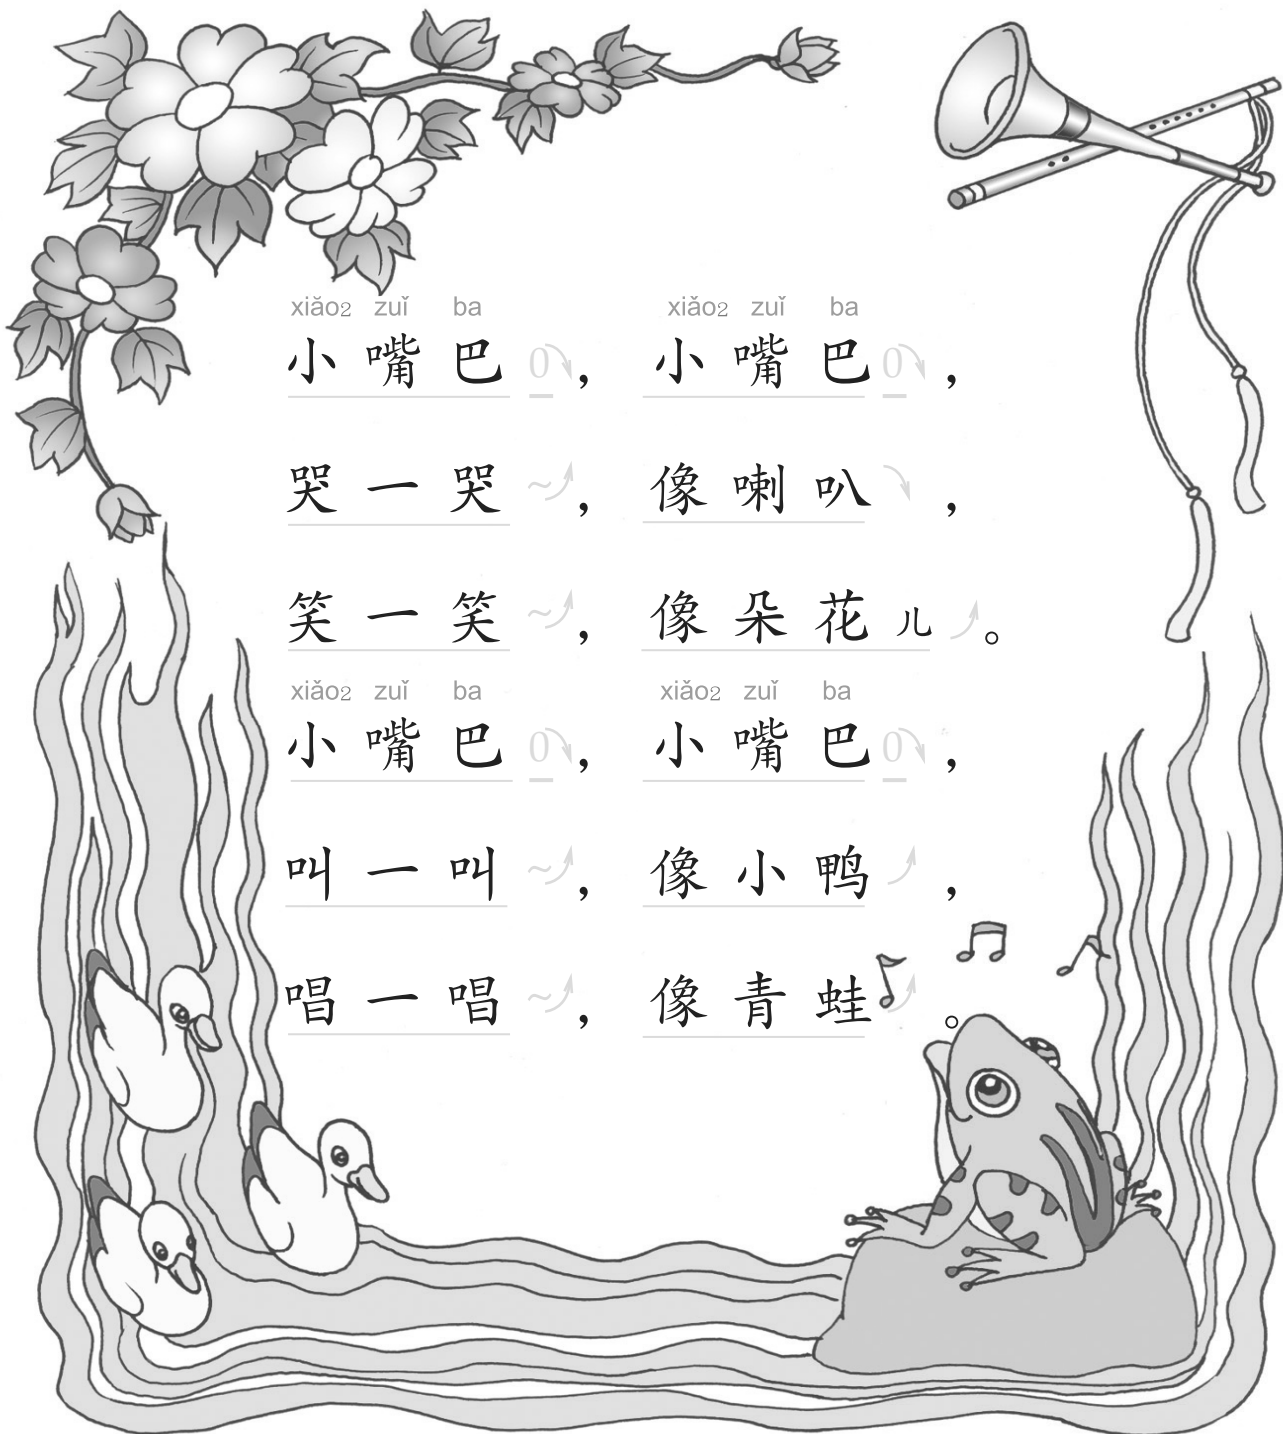 xiǎo2 zuǐ ba xiǎo2 zuǐ ba
小嘴巴0,小嘴巴0,
哭一哭~,像喇叭,
笑一笑~,像朵花儿。
xiǎo2 zuǐ ba xiǎo2 zuǐ ba
小嘴巴0,小嘴巴0,
叫一叫~,像小鸭,
唱一唱~,像青蛙。